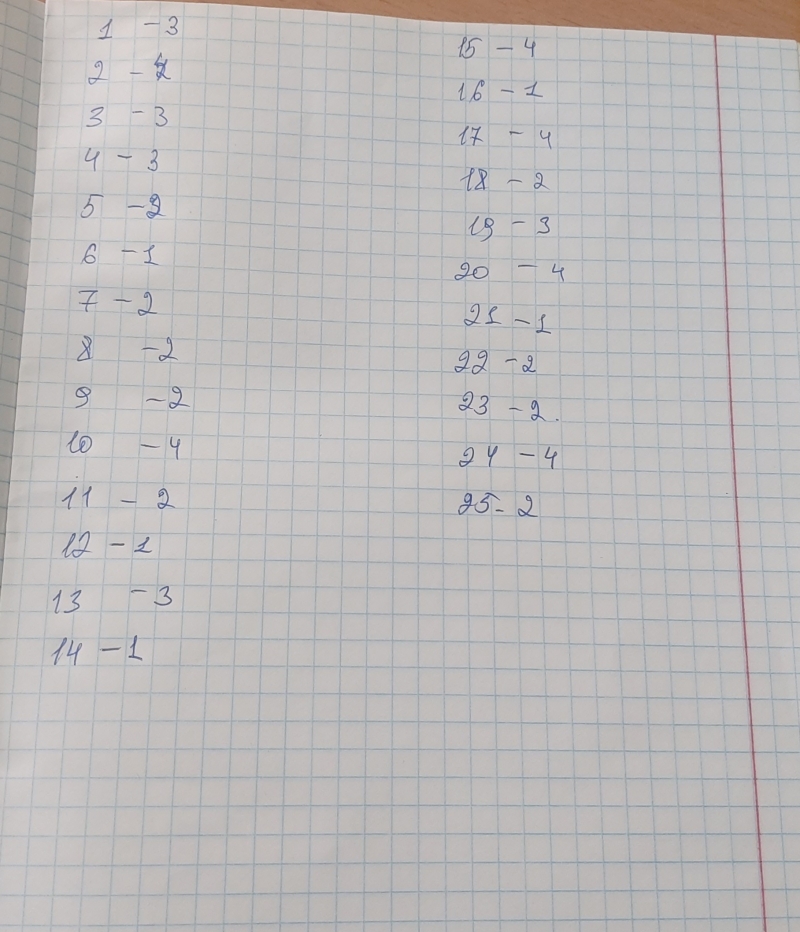 1 - 3
2 - 4
3 - 3
4 - 3
5 - 2
6 - 1
7 - 2
8 - 2
9 - 2
10 - 4
11 - 2
12 - 1
13 - 3
14 - 1
15 - 4
16 - 1
17 - 4
18 - 2
19 - 3
20 - 4
21 - 1
22 - 2
23 - 2.
24 - 4
25 - 2